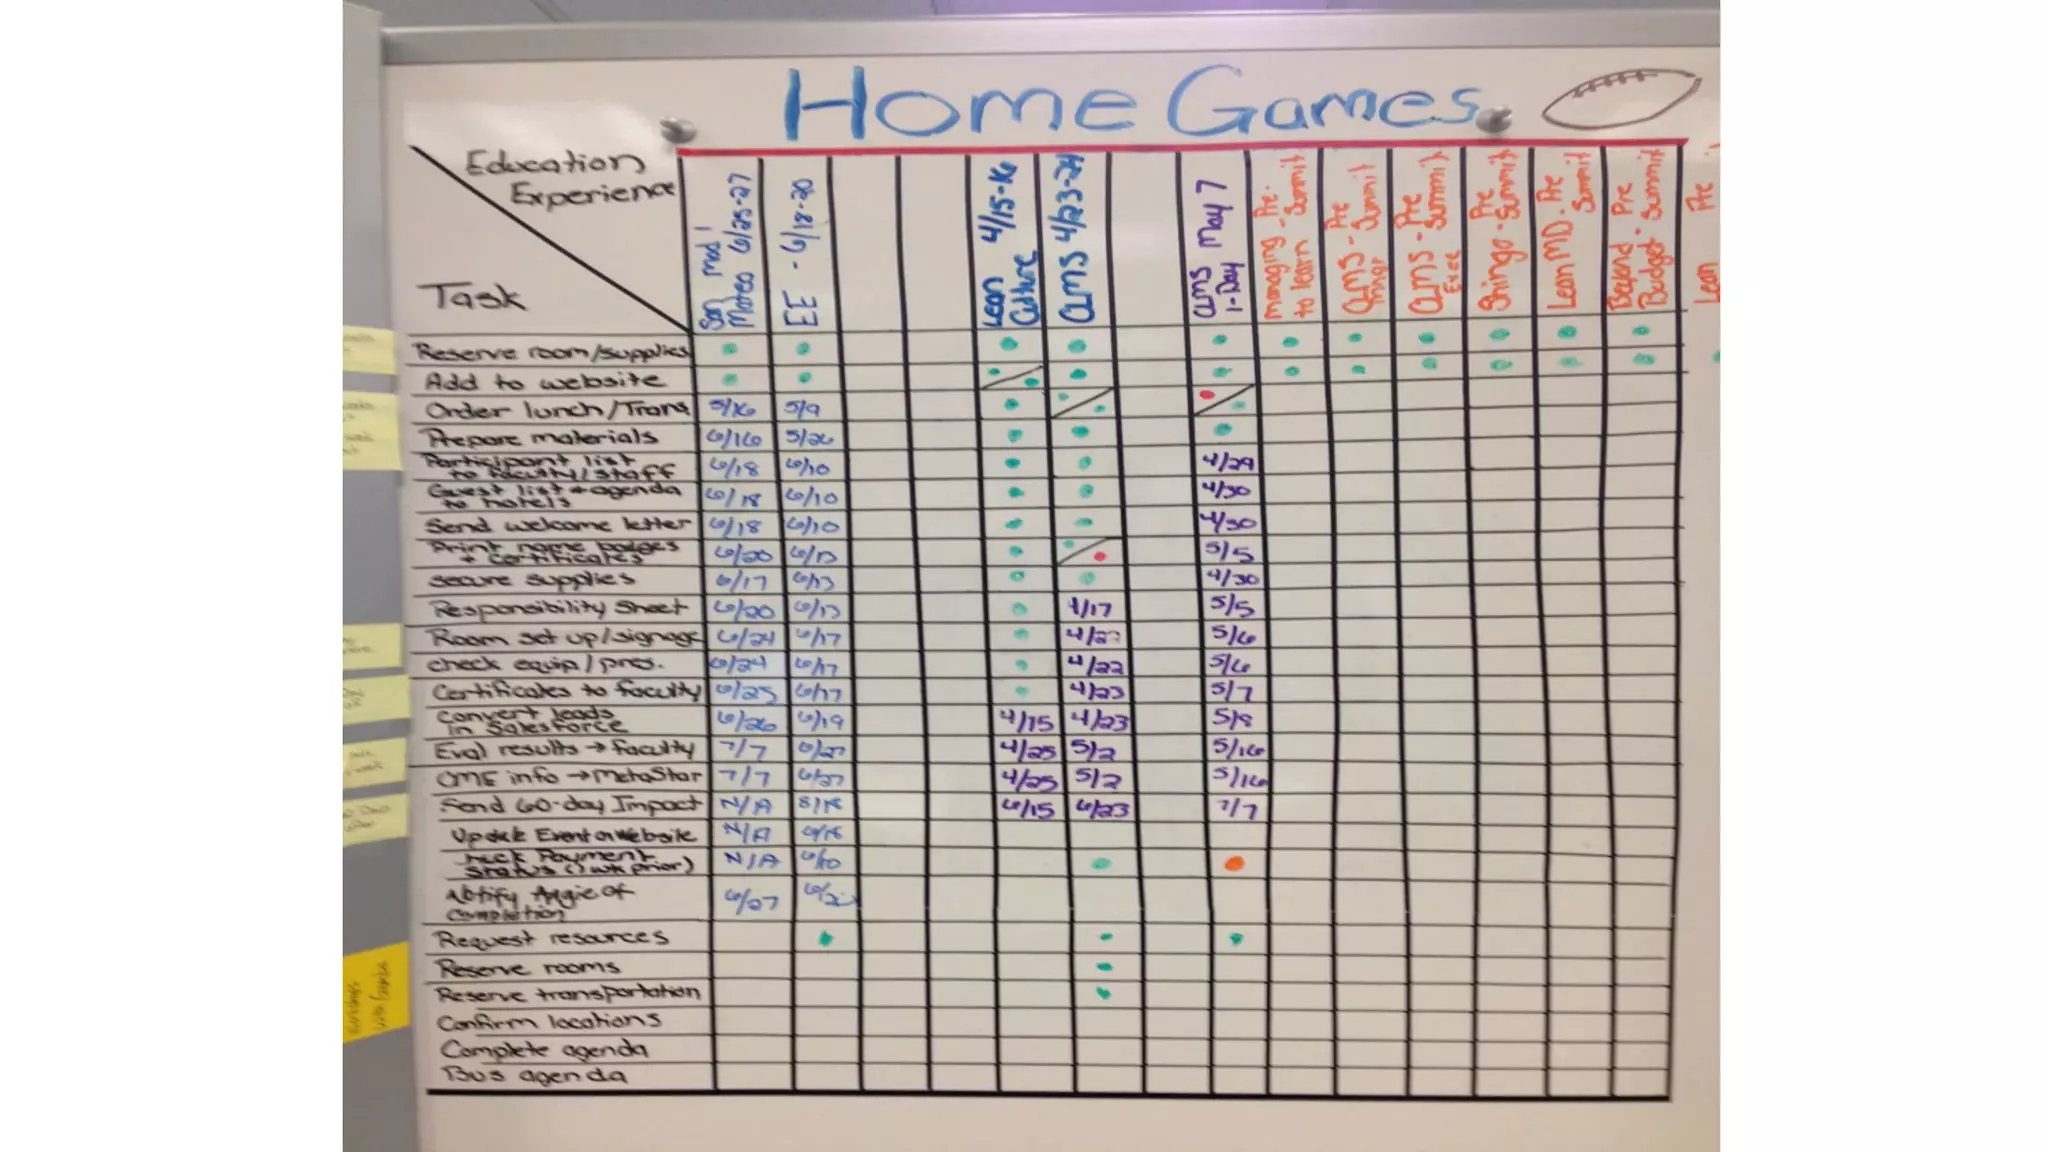 Home Games
Education
Experience
Task
San Mateo 6/25-27
EE - 6/18-20
Lean 4/15-16
Culture
CLMS 4/23-24
CLMS May 7
1-Day
Managing - Pre
to learn - Summit
CLMS - Pre
Summit
CLMS - Pre
Exec Summit
Pre
Summit
Lean MD - Pre
Summit
Beyond - Pre
Budget - Summit
Lean Pre
Reserve room/supplies
Add to website
Order lunch/Trans 5/16 5/9
Prepare materials 6/16 5/26
Participant list
to faculty/staff 6/18 6/10 4/29
Guest list + agenda
to hotels 6/18 6/10 4/30
Send welcome letter 6/18 6/10 4/30
Print name badges
+ certificates 6/20 6/13 5/5
secure supplies 6/17 6/13 4/30
Responsibility Sheet 6/20 6/13 4/17 5/5
Room set up/signage 6/24 6/17 4/22 5/6
check equip/pres. 6/24 6/17 4/22 5/6
Certificates to faculty 6/25 6/17 4/23 5/7
Convert leads
in Salesforce 6/26 6/19 4/15 4/23 5/8
Eval results → faculty 7/7 6/27 4/25 5/2 5/16
CME info → MetaStar 7/7 6/27 4/25 5/2 5/16
Send 60-day Impact N/A 8/18 6/15 6/23 7/7
Update Event on Website N/A
Payment
Status (1 wk prior) N/A 6/10
Notify Angie of
Completion 6/27
Request resources
Reserve rooms
Reserve transportation
Confirm locations
Complete agenda
Bus agenda